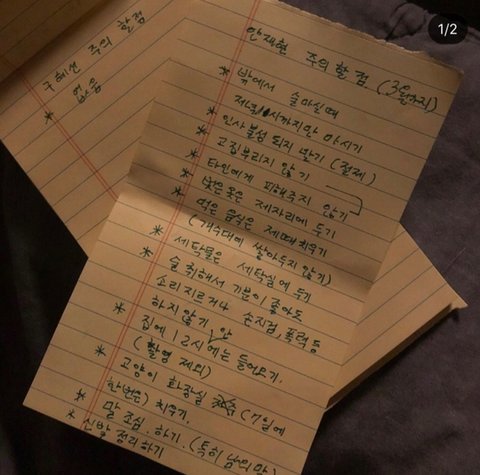 1/2
구혜선 주의 할점
* 없음
안재현 주의 할 점. (3월까지)
* 밖에서 술마실때
저녁 시까지만 마시기
* 인사불성 되지 말기 (절제)
* 고집부리지 않기
* 타인에게 피해주지 않기
* 벗은 옷은 제자리에 두기
* 먹은 음식은 제때 치우기
(개수대에 쌓아두지 않기)
* 세탁물은 세탁실에 두기
* 술 취해서 기분이 좋아도
소리지르거나 손지검, 폭력 등
하지 않기
* 집에 12시 안에는 들어오기.
(촬영 제외)
* 고양이 화장실 (7일에
한번은) 치우기.
* 말 조심. 하기. (특히 남의 말)
* 신발 정리하기